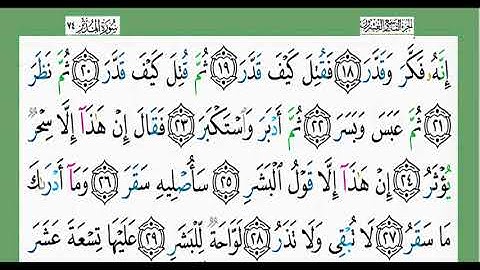 الجزء التاسع والعشرون سُورَةُ المُدَّثِّر ٧٤
إِنَّهُۥ فَكَّرَ وَقَدَّرَ ١٨ فَقُتِلَ كَيْفَ قَدَّرَ ١٩ ثُمَّ قُتِلَ كَيْفَ قَدَّرَ ٢٠ ثُمَّ نَظَرَ
٢١ ثُمَّ عَبَسَ وَبَسَرَ ٢٢ ثُمَّ أَدْبَرَ وَٱسْتَكْبَرَ ٢٣ فَقَالَ إِنْ هَٰذَآ إِلَّا سِحْرٌ
يُؤْثَرُ ٢٤ إِنْ هَٰذَآ إِلَّا قَوْلُ ٱلْبَشَرِ ٢٥ سَأُصْلِيهِ سَقَرَ ٢٦ وَمَآ أَدْرَىٰكَ
مَا سَقَرُ ٢٧ لَا تُبْقِى وَلَا تَذَرُ ٢٨ لَوَّاحَةٌ لِّلْبَشَرِ ٢٩ عَلَيْهَا تِسْعَةَ عَشَرَ